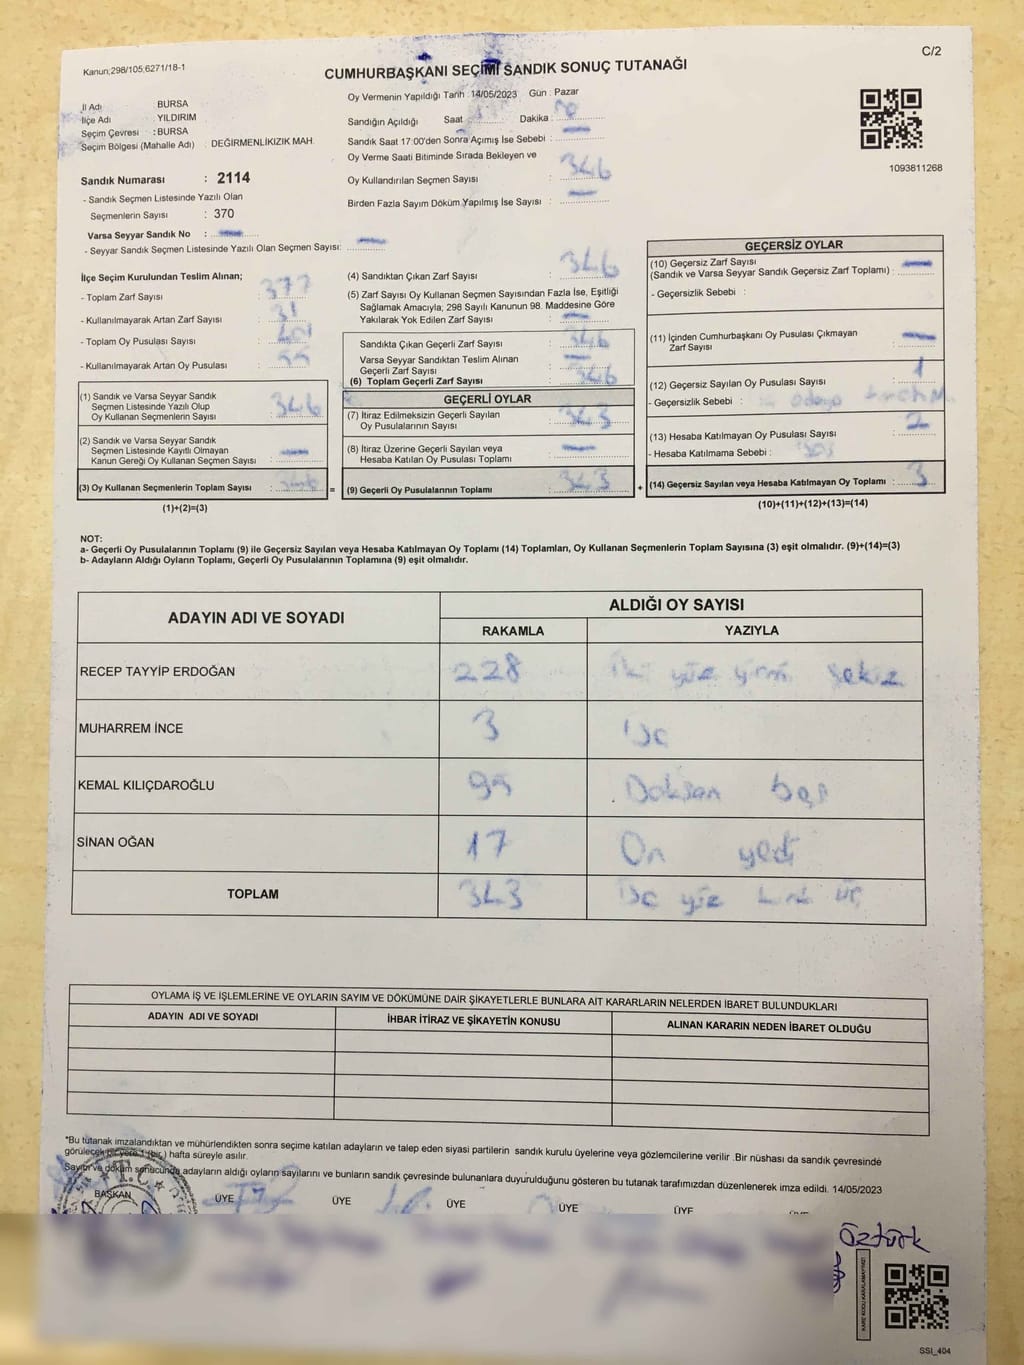 C/2
Kanun;298/105;6271/18-1
CUMHURBAŞKANI SEÇİMİ SANDIK SONUÇ TUTANAĞI
İl Adı BURSA
İlçe Adı YILDIRIM
Seçim Çevresi : BURSA
Seçim Bölgesi (Mahalle Adı) : DEĞİRMENLİKIZIK MAH.
Oy Vermenin Yapıldığı Tarih : 14/05/2023 Gün : Pazar
Sandığın Açıldığı Saat Dakika :
Sandık Saat 17:00'den Sonra Açımış İse Sebebi :
Oy Verme Saati Bitiminde Sırada Bekleyen ve
Oy Kullandırılan Seçmen Sayısı : 346
Birden Fazla Sayım Döküm Yapılmış İse Sayısı : —
1093811268
Sandık Numarası : 2114
- Sandık Seçmen Listesinde Yazılı Olan
Seçmenlerin Sayısı : 370
Varsa Seyyar Sandık No : —
- Seyyar Sandık Seçmen Listesinde Yazılı Olan Seçmen Sayısı: —
İlçe Seçim Kurulundan Teslim Alınan;
- Toplam Zarf Sayısı : 377
- Kullanılmayarak Artan Zarf Sayısı : 31
- Toplam Oy Pusulası Sayısı : 401
- Kullanılmayarak Artan Oy Pusulası : 55
(1) Sandık ve Varsa Seyyar Sandık
Seçmen Listesinde Yazılı Olup
Oy Kullanan Seçmenlerin Sayısı : 346
(2) Sandık ve Varsa Seyyar Sandık
Seçmen Listesinde Kayıtlı Olmayan
Kanun Gereği Oy Kullanan Seçmen Sayısı : —
(3) Oy Kullanan Seçmenlerin Toplam Sayısı : 346
(1)+(2)=(3)
(4) Sandıktan Çıkan Zarf Sayısı : 346
(5) Zarf Sayısı Oy Kullanan Seçmen Sayısından Fazla İse, Eşitliği
Sağlamak Amacıyla; 298 Sayılı Kanunun 98. Maddesine Göre
Yakılarak Yok Edilen Zarf Sayısı : —
Sandıkta Çıkan Geçerli Zarf Sayısı : 346
Varsa Seyyar Sandıktan Teslim Alınan
Geçerli Zarf Sayısı : —
(6) Toplam Geçerli Zarf Sayısı : 346
GEÇERLİ OYLAR
(7) İtiraz Edilmeksizin Geçerli Sayılan
Oy Pusulalarının Sayısı : 343
(8) İtiraz Üzerine Geçerli Sayılan veya
Hesaba Katılan Oy Pusulası Toplamı : —
= (9) Geçerli Oy Pusulalarının Toplamı : 343
GEÇERSİZ OYLAR
(10) Geçersiz Zarf Sayısı
(Sandık ve Varsa Seyyar Sandık Geçersiz Zarf Toplamı) : —
- Geçersizlik Sebebi :
(11) İçinden Cumhurbaşkanı Oy Pusulası Çıkmayan
Zarf Sayısı : —
(12) Geçersiz Sayılan Oy Pusulası Sayısı : 1
- Geçersizlik Sebebi :
(13) Hesaba Katılmayan Oy Pusulası Sayısı : 2
- Hesaba Katılmama Sebebi :
+ (14) Geçersiz Sayılan veya Hesaba Katılmayan Oy Toplamı : 3
(10)+(11)+(12)+(13)=(14)
NOT:
a- Geçerli Oy Pusulalarının Toplamı (9) ile Geçersiz Sayılan veya Hesaba Katılmayan Oy Toplamı (14) Toplamları, Oy Kullanan Seçmenlerin Toplam Sayısına (3) eşit olmalıdır. (9)+(14)=(3)
b- Adayların Aldığı Oyların Toplamı, Geçerli Oy Pusulalarının Toplamına (9) eşit olmalıdır.
ADAYIN ADI VE SOYADI ALDIĞI OY SAYISI
RAKAMLA YAZIYLA
RECEP TAYYİP ERDOĞAN 228 İki yüz yirmi sekiz
MUHARREM İNCE 3 Üç
KEMAL KILIÇDAROĞLU 95 Doksan beş
SİNAN OĞAN 17 On yedi
TOPLAM 343 Üç yüz kırk üç
OYLAMA İŞ VE İŞLEMLERİNE VE OYLARIN SAYIM VE DÖKÜMÜNE DAİR ŞİKAYETLERLE BUNLARA AİT KARARLARIN NELERDEN İBARET BULUNDUKLARI
ADAYIN ADI VE SOYADI İHBAR İTİRAZ VE ŞİKAYETİN KONUSU ALINAN KARARIN NEDEN İBARET OLDUĞU
*Bu tutanak imzalandıktan ve mühürlendikten sonra seçime katılan adayların ve talep eden siyasi partilerin sandık kurulu üyelerine veya gözlemcilerine verilir .Bir nüshası da sandık çevresinde
görülecek bir yere 1 (bir ) hafta süreyle asılır.
Sayım ve döküm sonucunda adayların aldığı oyların sayılarını ve bunların sandık çevresinde bulunanlara duyurulduğunu gösteren bu tutanak tarafımızdan düzenlenerek imza edildi. 14/05/2023
T.C.
BAŞKAN ÜYE ÜYE ÜYE ÜYE ÜYE
Öztürk
KARE KODU KARALAMAYINIZ!
SSI_404